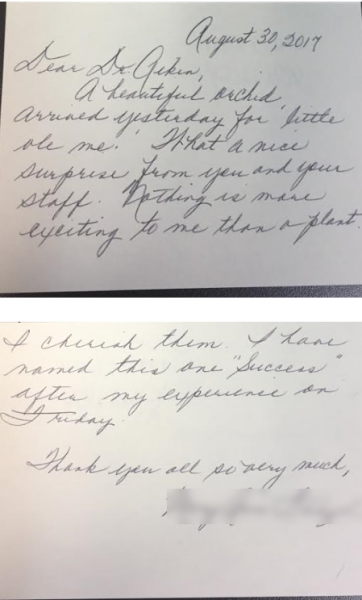 August 30, 2017
Dear Dr. Aiken,
A beautiful orchid
arrived yesterday for 'little
ole me.' What a nice
surprise from you and your
staff. Nothing is more
exciting to me than a plant.
I cherish them. I have
named this one "Success"
after my experience on
Friday.
Thank you all so very much,